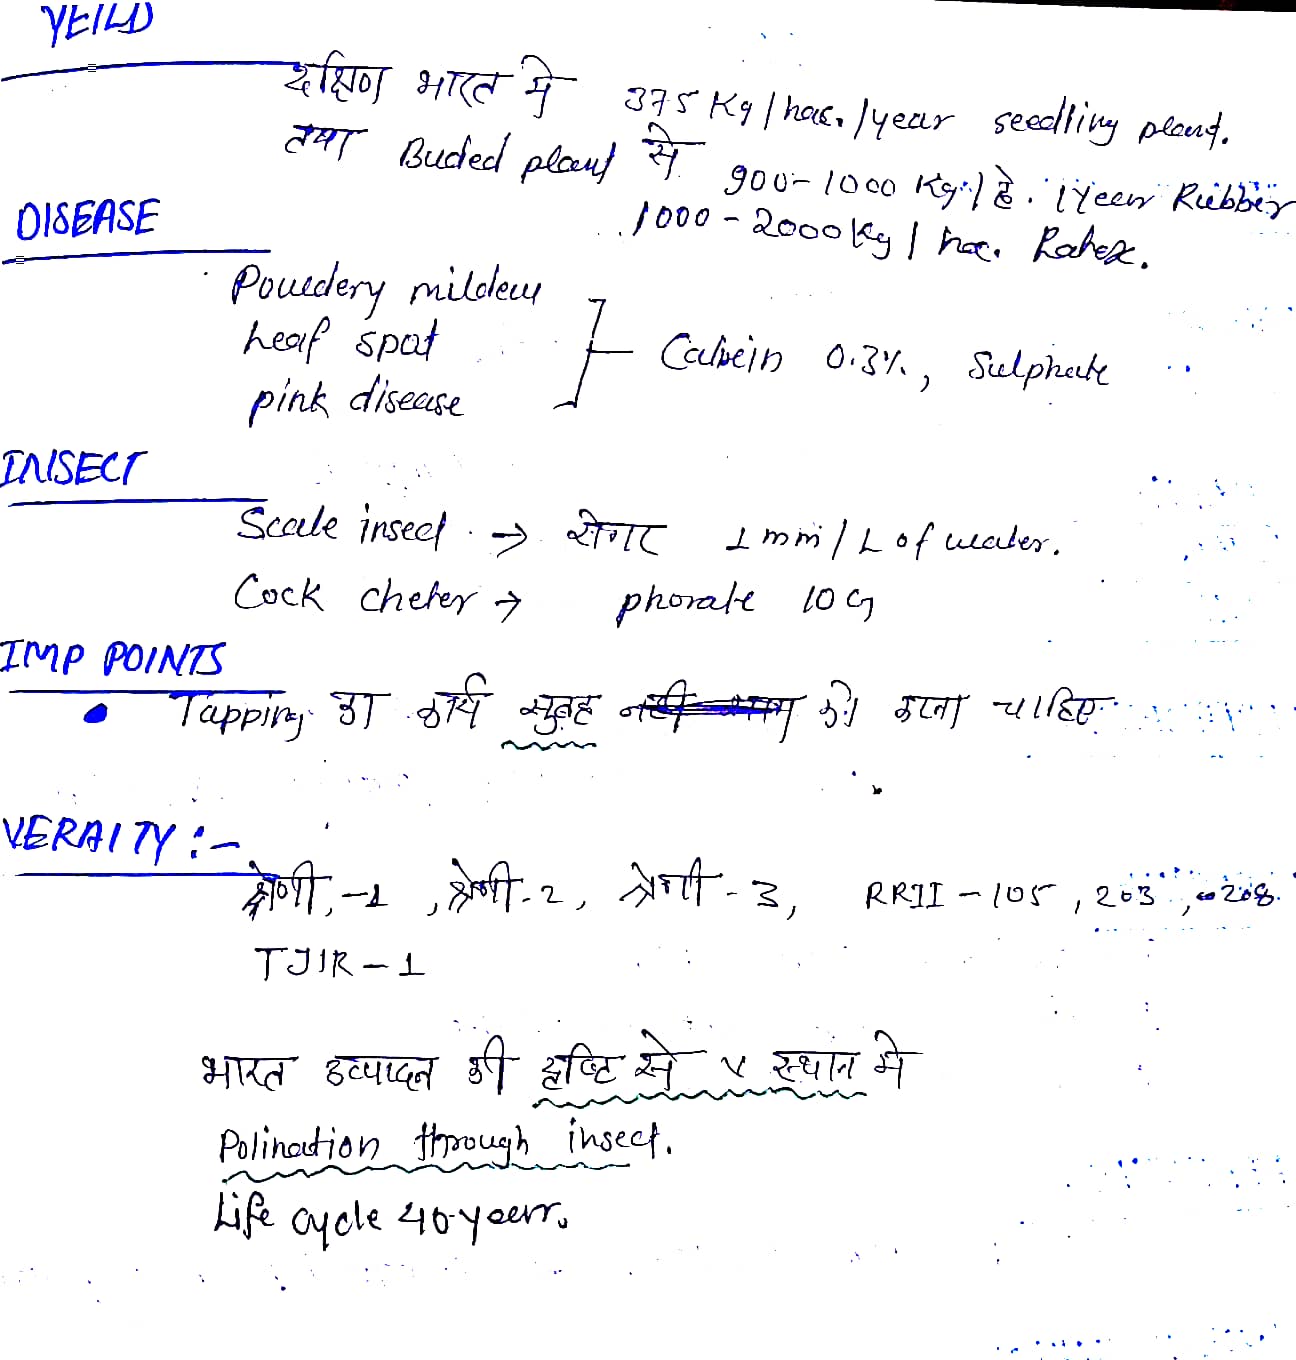 YEILD
दक्षिण भारत मे 375 Kg/hac./year seedling plant.
तथा Buded plant से 900-1000 Kg/हे. 1 Year Rubber
1000-2000 Kg/hac. Ratex.
DISEASE
Pouedery mildew
Leaf spot
pink disease
] Calxein 0.3%, Sulphate
INSECT
Scale insect → रोगार 1 mm/L of water.
Cock cheter → phorate 10 G
IMP POINTS
• Tapping का कार्य सुबह को करना चाहिए
VERAITY :-
श्रेणी-1, श्रेणी-2, श्रेणी-3, RRII-105, 203, 208.
TJIR-1
भारत उत्पादन की दृष्टि से स्थान मे
Polination through insect.
Life cycle 40 year.